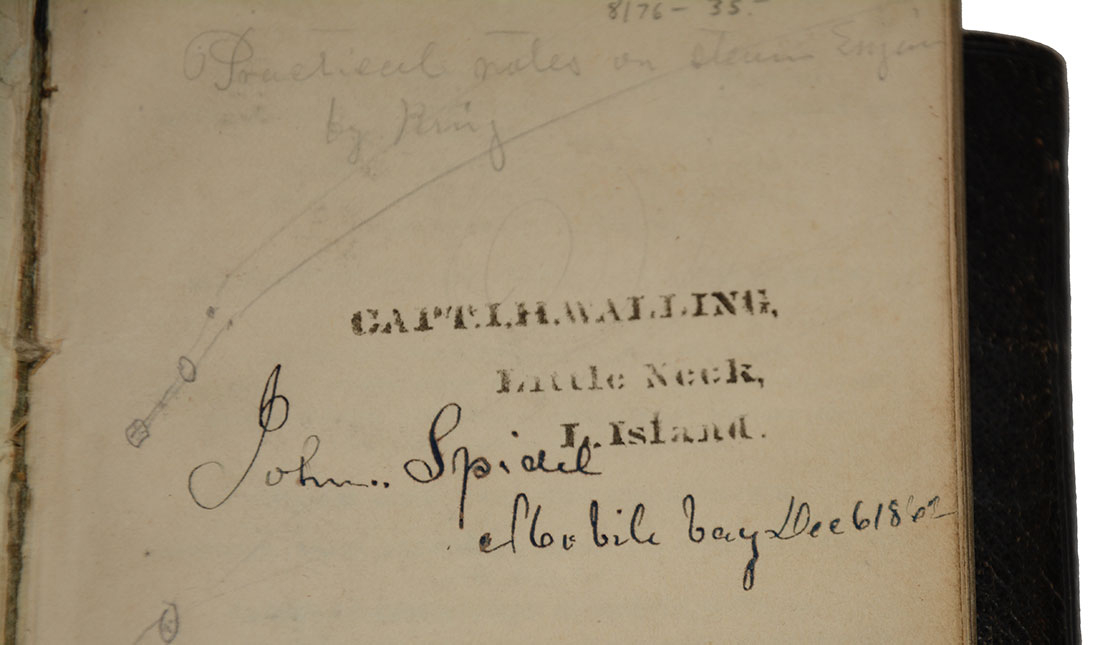 8/76 - 35 -
Practical notes on steam Engin
by King
CAPT. I. H. WALLING,
Little Neck,
L. Island.
John.. Spidel
Mobile bay Dec 6 1862